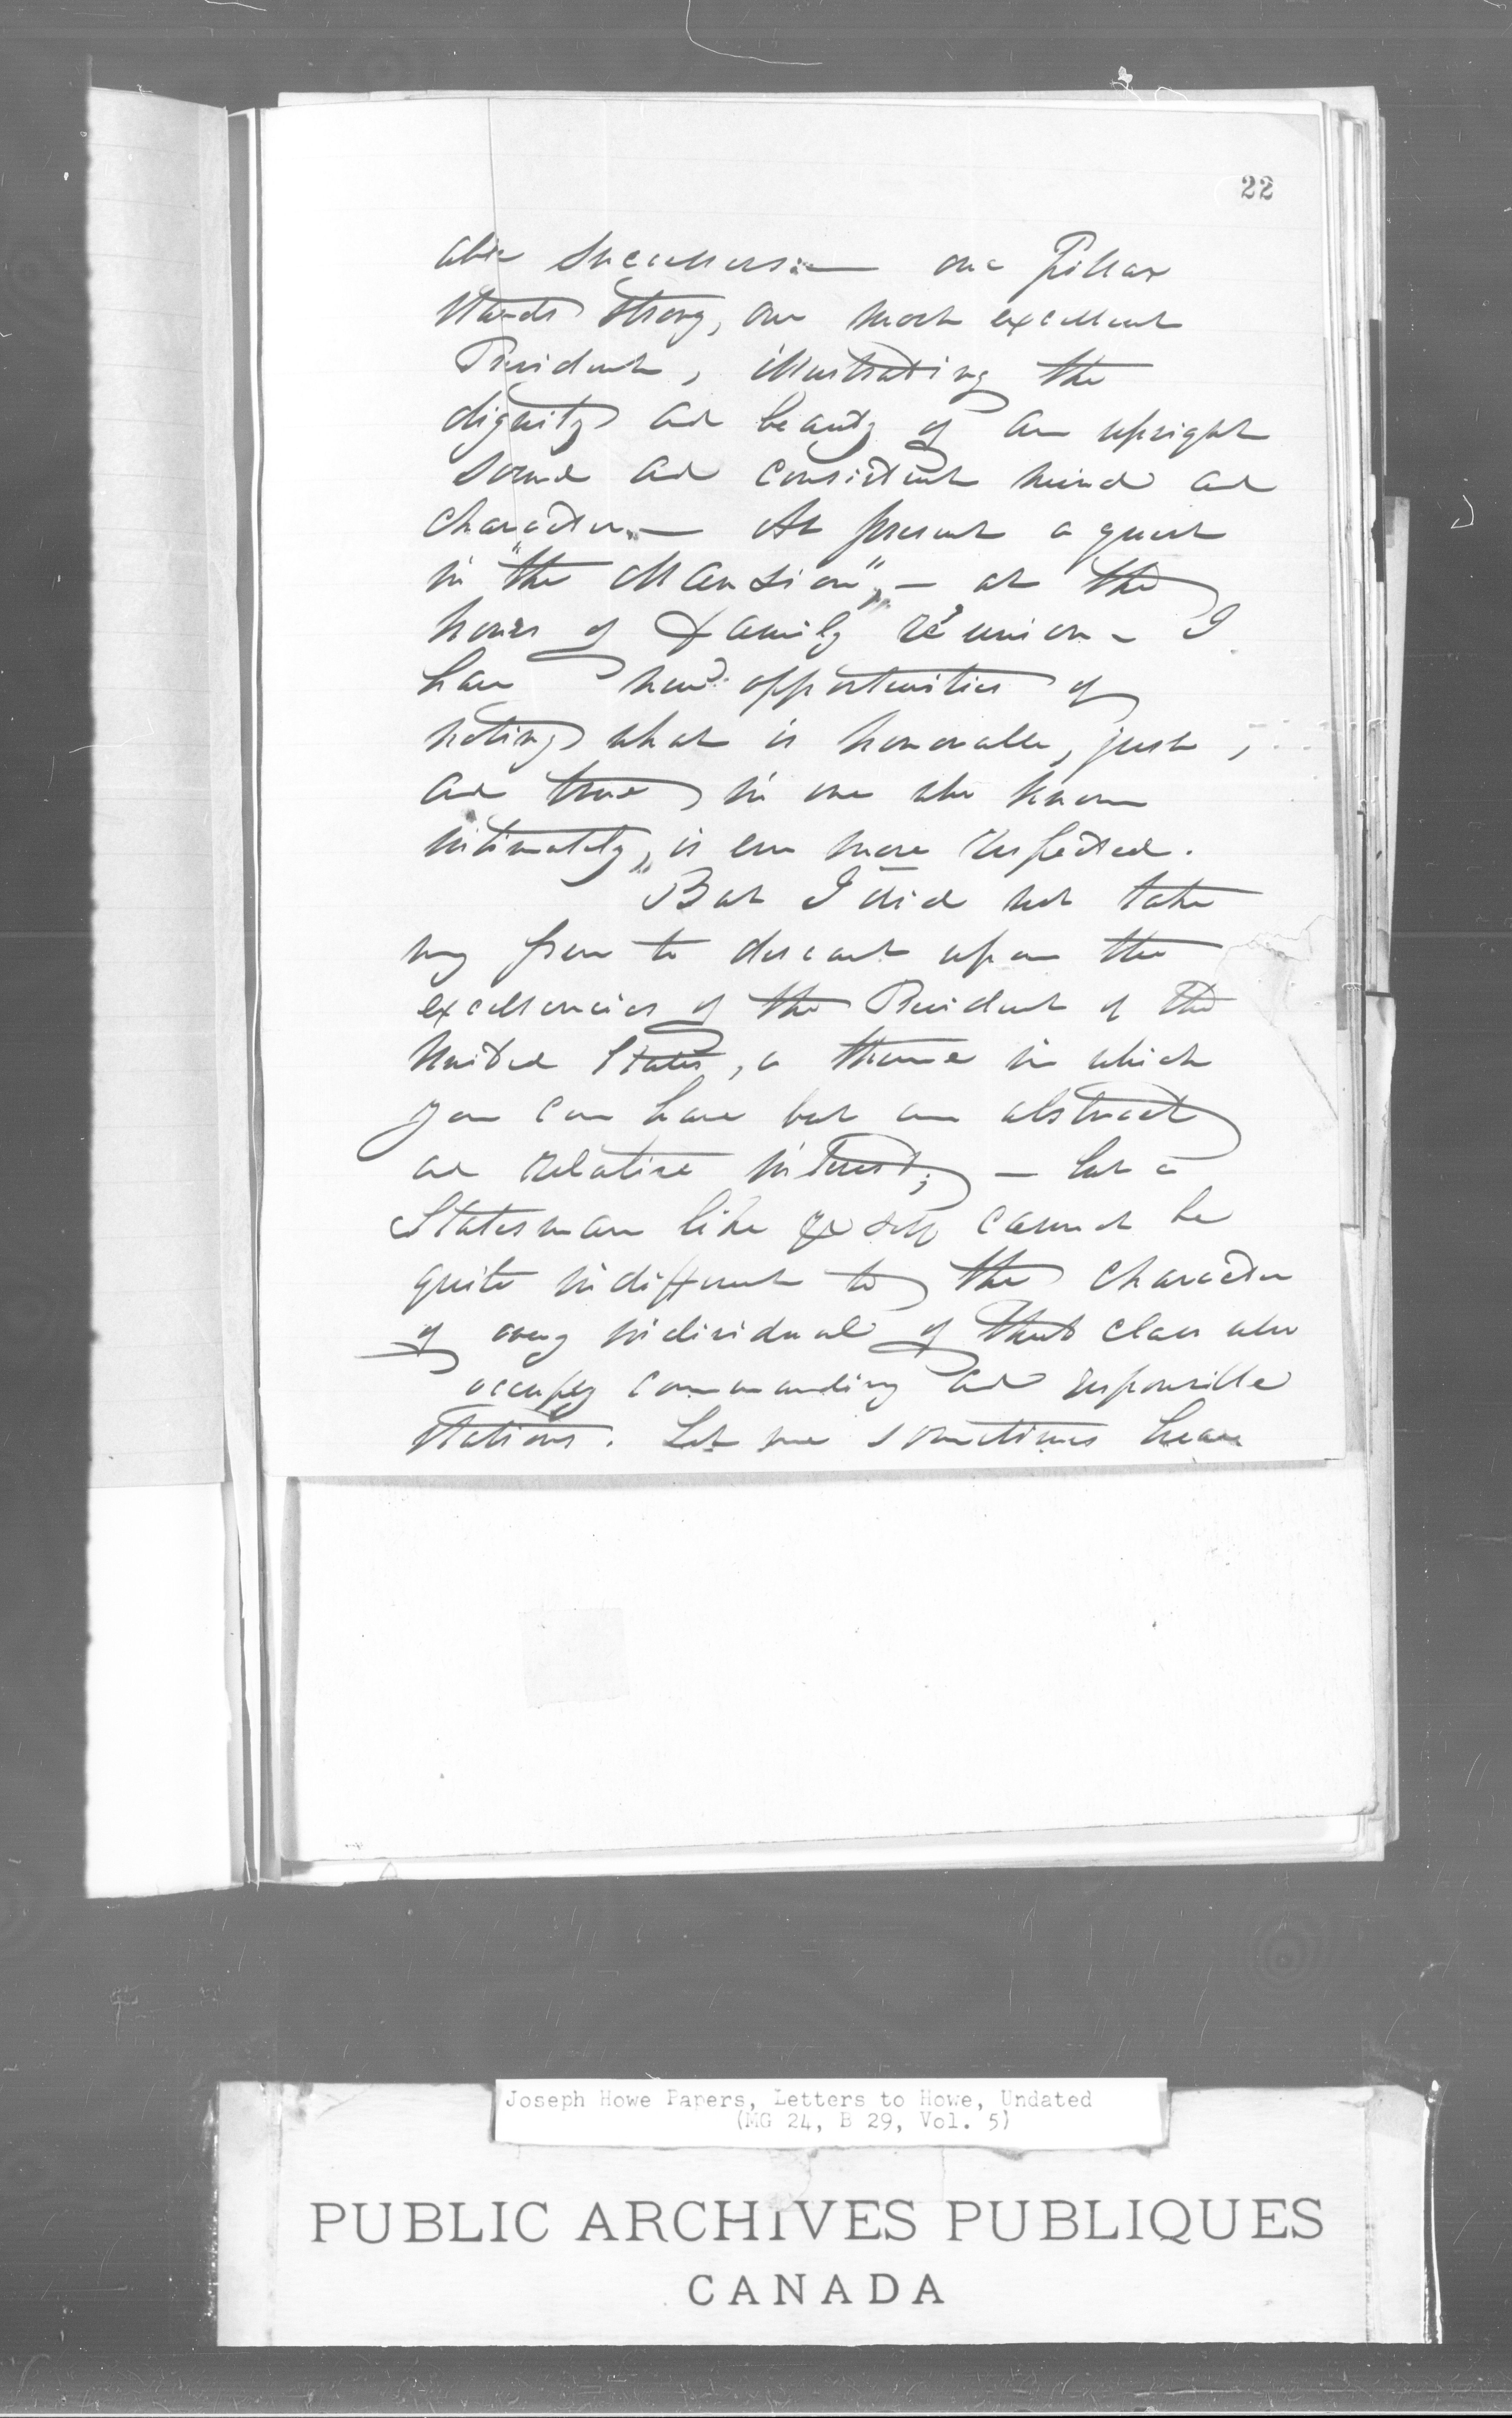 22
able successors:— one Pillar
stands strong, our most excellent
President, illustrating the
dignity and beauty of an upright
sound and consistent mind and
character,— At present a guest
in "the Mansion",— at the
hours of family réunion – I
have new opportunities of
noting what is honorable, just,
and true in one who known
intimately, is ever more respected.
But I did not take
my pen to descant upon the
excellencies of the President of the
United States, a theme in which
you can have but an abstract
and relative interest; — but a
Statesman like yrself cannot be
quite indifferent to the character
of every individual of that class who
occupy commanding and responsible
stations. Let me sometimes hear
Joseph Howe Papers, Letters to Howe, Undated
(MG 24, B 29, Vol. 5)
PUBLIC ARCHIVES PUBLIQUES
CANADA